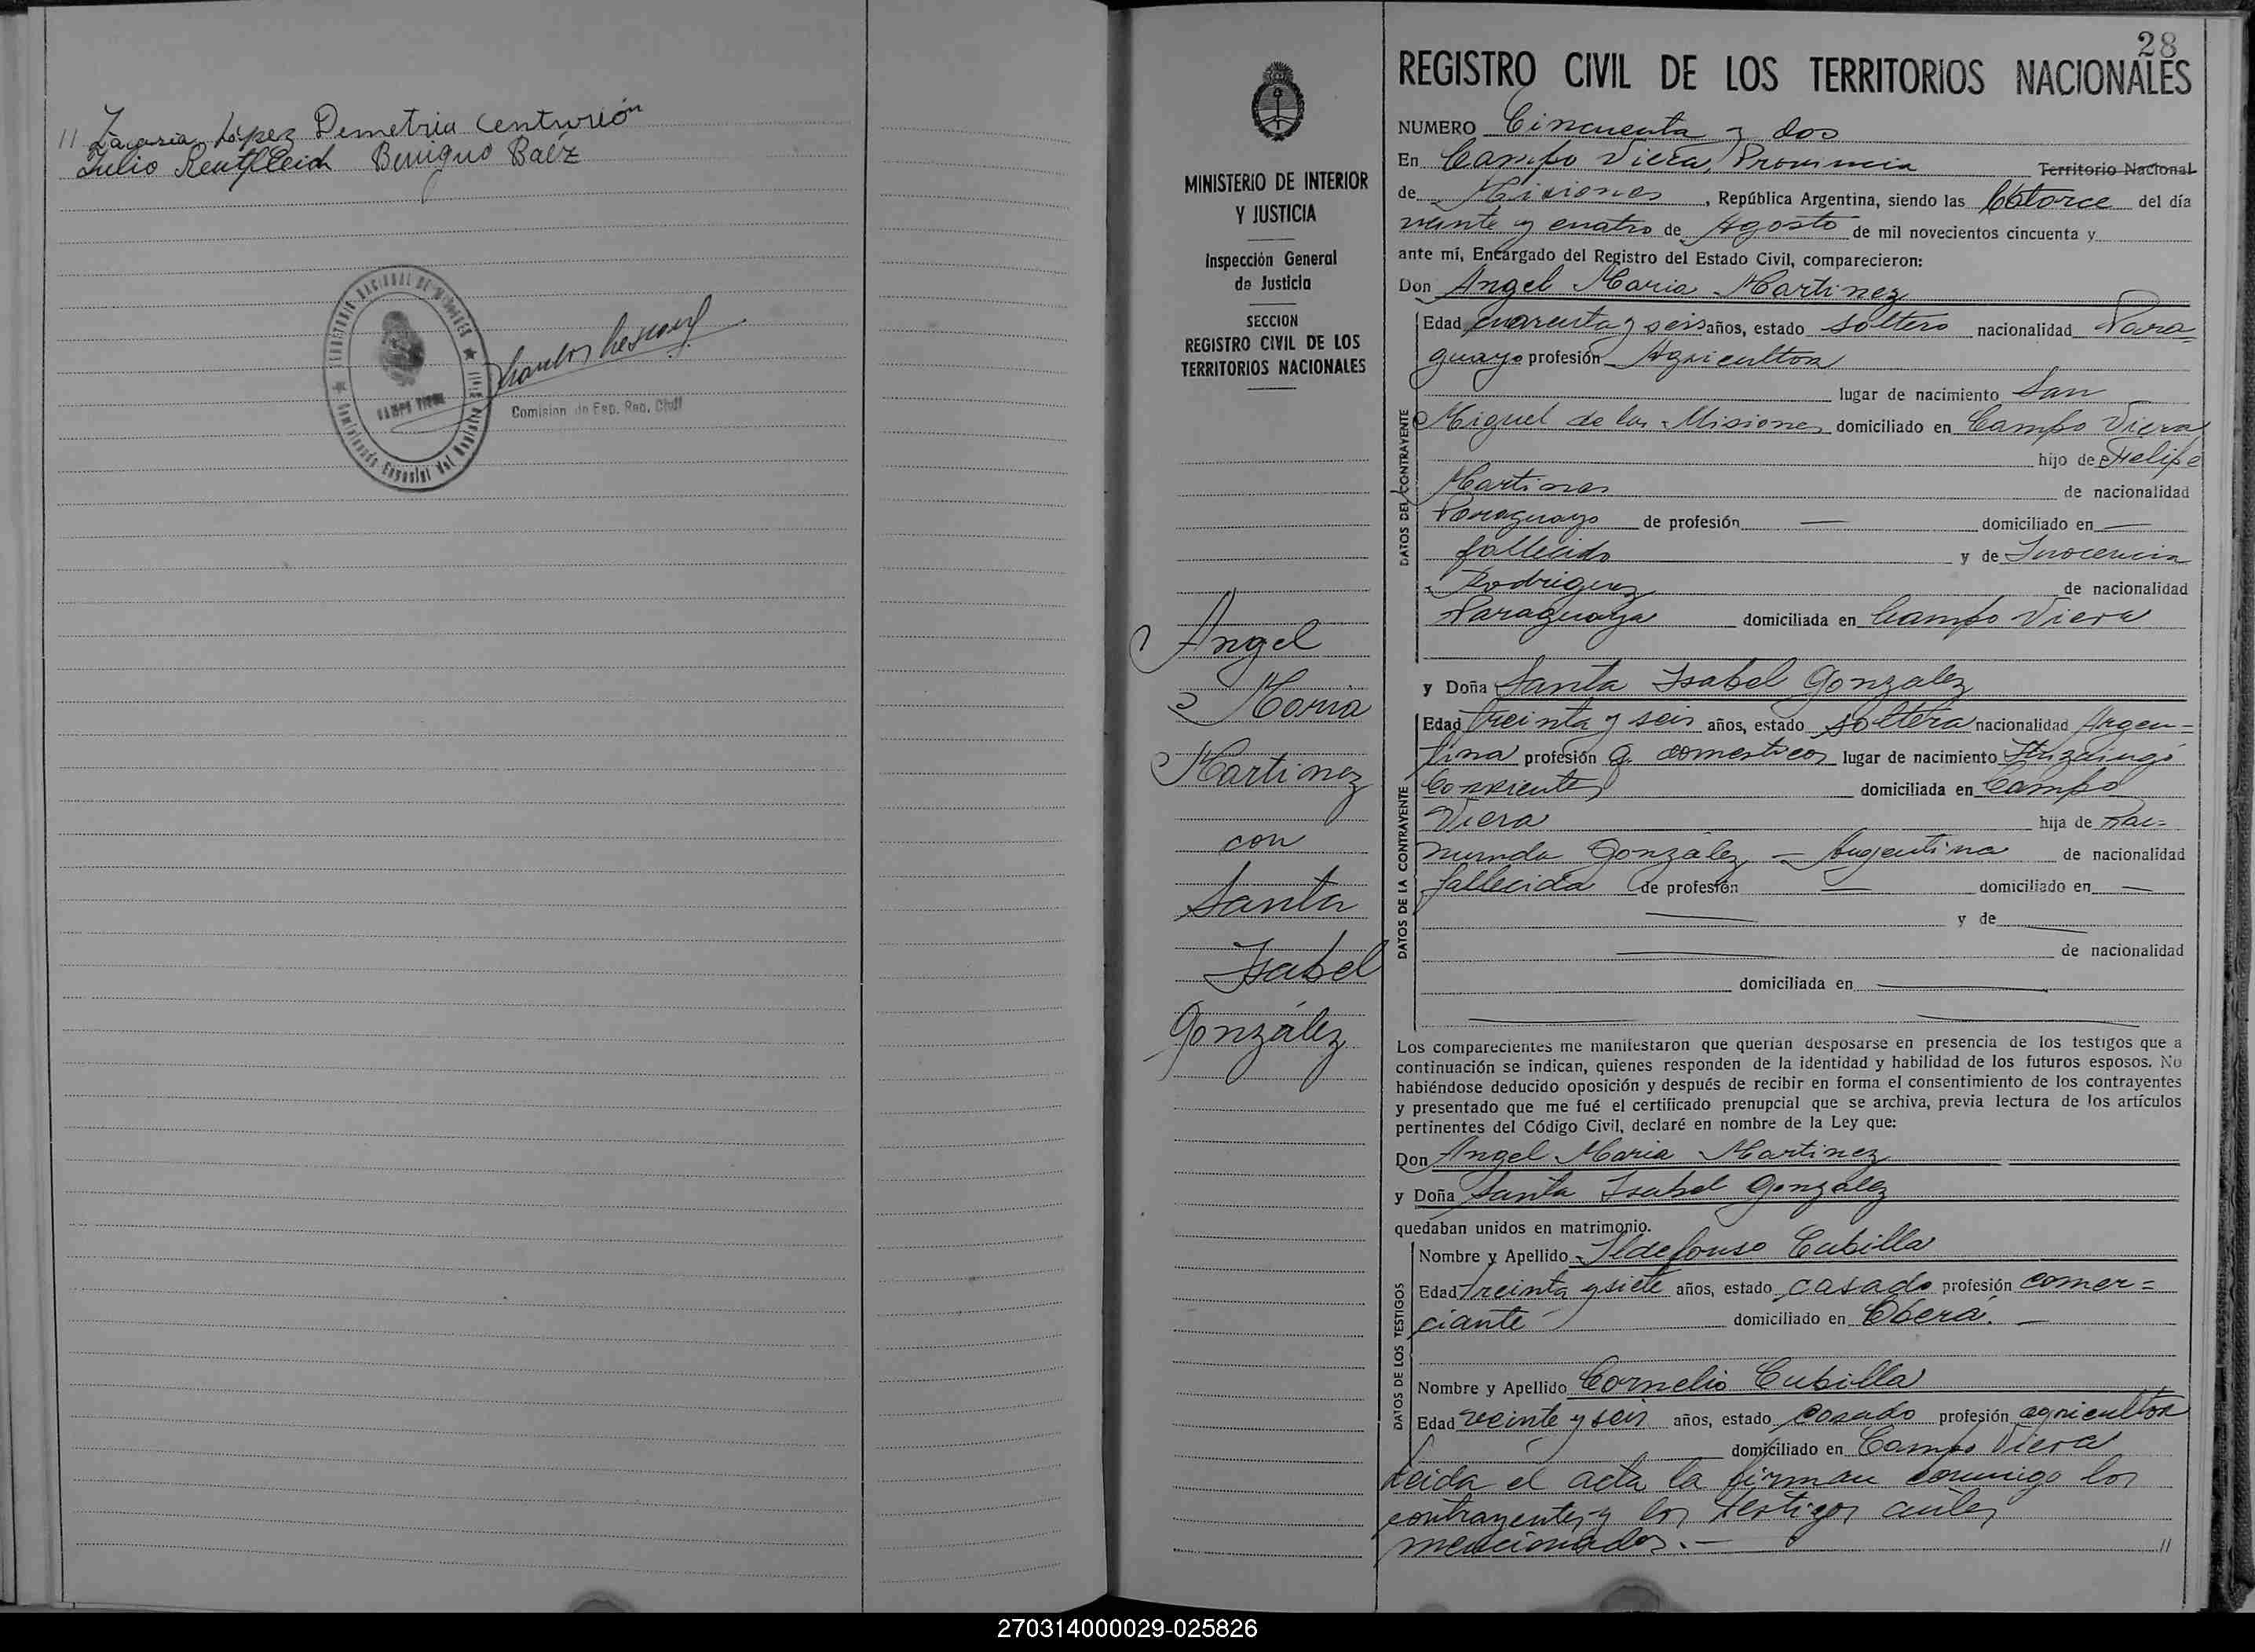 // Zacaria López Demetria Centurión
Julio Benigno Baéz
TERRITORIO NACIONAL DE MISIONES
CAMPO VIERA
Comision de Esp. Reg. Civil
28
REGISTRO CIVIL DE LOS TERRITORIOS NACIONALES
MINISTERIO DE INTERIOR
Y JUSTICIA
Inspección General
de Justicia
SECCION
REGISTRO CIVIL DE LOS
TERRITORIOS NACIONALES
Angel
Maria
Martinez
con
Santa
Isabel
González
NUMERO Cincuenta y dos
En Campo Viera, Provincia Territorio Nacional
de Misiones, República Argentina, siendo las Catorce del día
veinte y cuatro de Agosto de mil novecientos cincuenta y
ante mí, Encargado del Registro del Estado Civil, comparecieron:
Don Angel Maria Martinez
DATOS DEL CONTRAYENTE
Edad cuarenta y seis años, estado soltero nacionalidad Para
guayo profesión Agricultor
lugar de nacimiento San
Miguel de las Misiones domiciliado en Campo Viera
hijo de Felipe
Martines de nacionalidad
Paraguayo de profesión — domiciliado en —
fallecido y de Inocencia
Rodriguez de nacionalidad
Paraguaya domiciliada en Campo Viera
y Doña Santa Isabel Gonzalez
DATOS DE LA CONTRAYENTE
Edad treinta y seis años, estado soltera nacionalidad Argen=
tina profesión q. domesticos lugar de nacimiento Ituzaingó
Corrientes domiciliada en Campo
Viera hija de Rai=
munda González - Argentina de nacionalidad
fallecida de profesión — domiciliado en —
— y de —
— de nacionalidad
domiciliada en —
Los comparecientes me manifestaron que querían desposarse en presencia de los testigos que a
continuación se indican, quienes responden de la identidad y habilidad de los futuros esposos. No
habiéndose deducido oposición y después de recibir en forma el consentimiento de los contrayentes
y presentado que me fué el certificado prenupcial que se archiva, previa lectura de los artículos
pertinentes del Código Civil, declaré en nombre de la Ley que:
Don Angel Maria Martinez
y Doña Santa Isabel González
quedaban unidos en matrimonio.
DATOS DE LOS TESTIGOS
Nombre y Apellido Ildefonso Cubilla
Edad treinta y siete años, estado casado profesión comer=
ciante domiciliado en Oberá. —
Nombre y Apellido Cornelio Cubilla
Edad veinte y seis años, estado casado profesión agricultor
domiciliado en Campo Viera
Leida el acta la firman conmigo los
contrayentes y los testigos antes
mencionados.— //
270314000029-025826